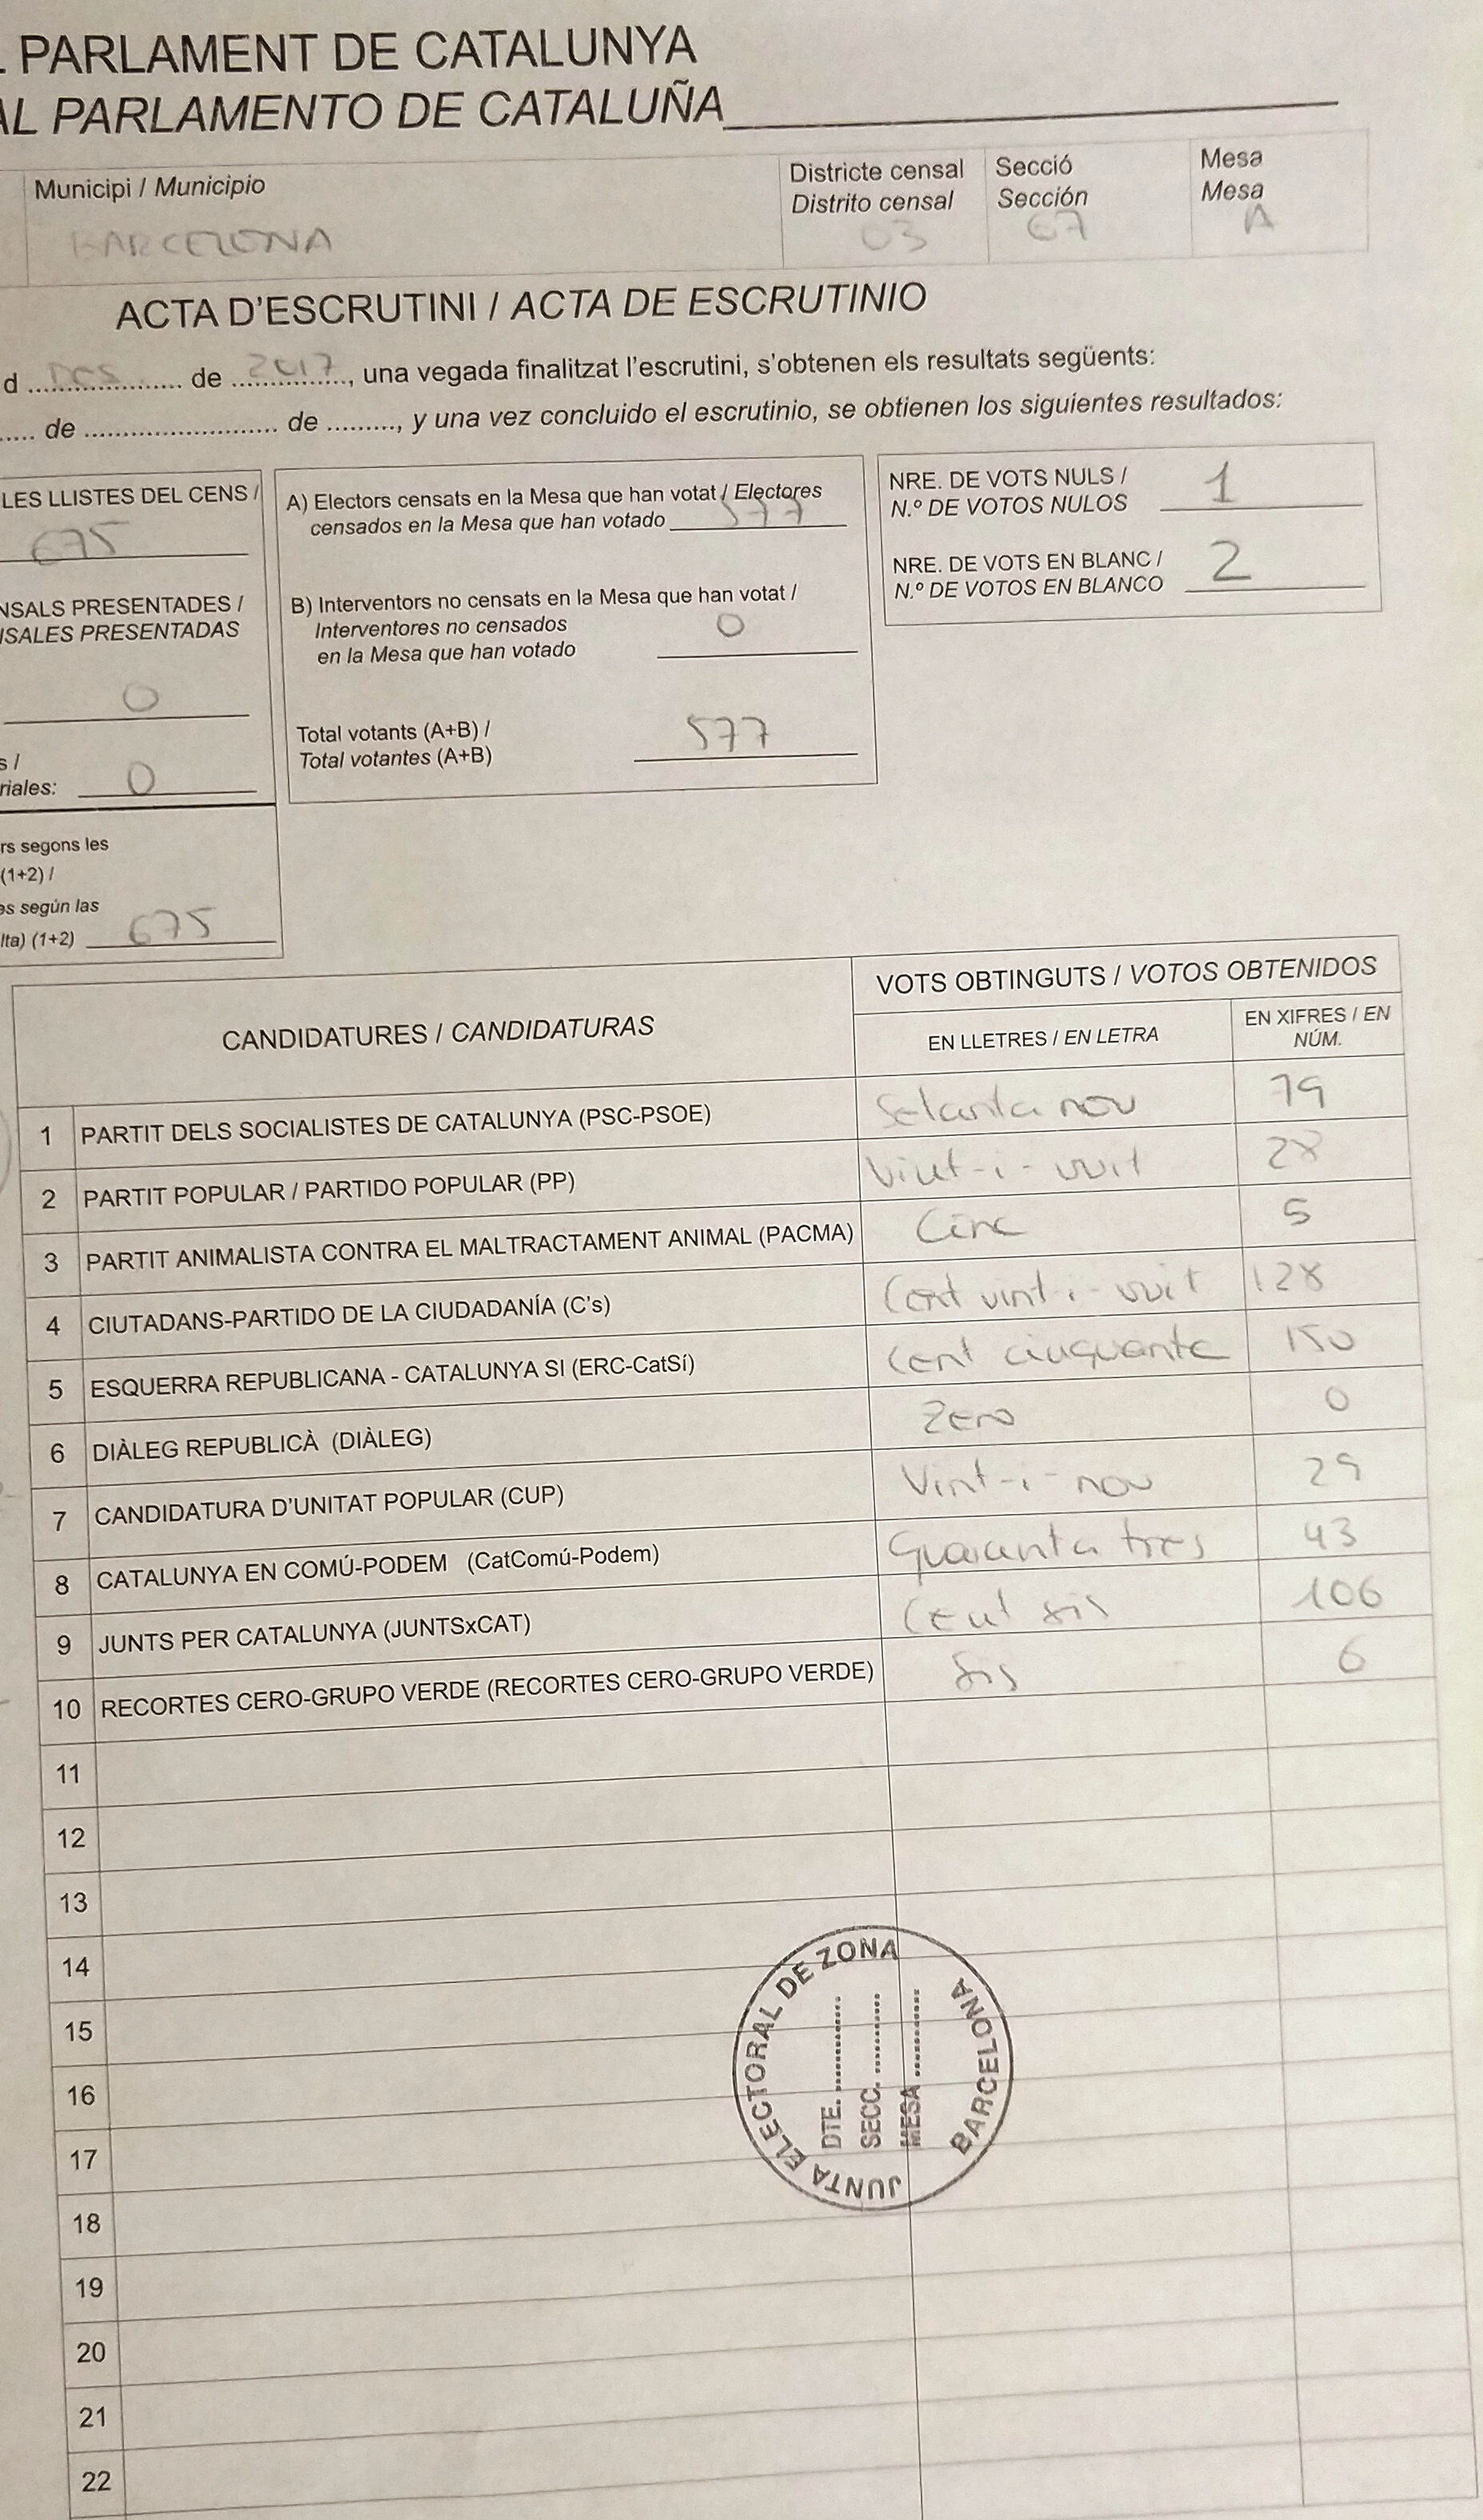 L PARLAMENT DE CATALUNYA
AL PARLAMENTO DE CATALUÑA
Municipi / Municipio
BARCELONA
Districte censal
Distrito censal
03
Secció
Sección
67
Mesa
Mesa
A
ACTA D'ESCRUTINI / ACTA DE ESCRUTINIO
d DES de 2017, una vegada finalitzat l'escrutini, s'obtenen els resultats següents:
de ........ de ........, y una vez concluido el escrutinio, se obtienen los siguientes resultados:
LES LLISTES DEL CENS /
675
NSALS PRESENTADES /
NSALES PRESENTADAS
0
s /
riales: 0
rs segons les
(1+2) /
es según las
lta) (1+2) 675
A) Electors censats en la Mesa que han votat / Electores
censados en la Mesa que han votado 577
B) Interventors no censats en la Mesa que han votat /
Interventores no censados
en la Mesa que han votado 0
Total votants (A+B) /
Total votantes (A+B) 577
NRE. DE VOTS NULS /
N.º DE VOTOS NULOS 1
NRE. DE VOTS EN BLANC /
N.º DE VOTOS EN BLANCO 2
CANDIDATURES / CANDIDATURAS
VOTS OBTINGUTS / VOTOS OBTENIDOS
EN LLETRES / EN LETRA
EN XIFRES / EN
NÚM.
1 PARTIT DELS SOCIALISTES DE CATALUNYA (PSC-PSOE) Setanta nou 79
2 PARTIT POPULAR / PARTIDO POPULAR (PP) Vint-i-vuit 28
3 PARTIT ANIMALISTA CONTRA EL MALTRACTAMENT ANIMAL (PACMA) Cinc 5
4 CIUTADANS-PARTIDO DE LA CIUDADANÍA (C's) Cent vint-i-vuit 128
5 ESQUERRA REPUBLICANA - CATALUNYA SI (ERC-CatSí) Cent cinquanta 150
6 DIÀLEG REPUBLICÀ (DIÀLEG) Zero 0
7 CANDIDATURA D'UNITAT POPULAR (CUP) Vint-i-nou 29
8 CATALUNYA EN COMÚ-PODEM (CatComú-Podem) Quaranta tres 43
9 JUNTS PER CATALUNYA (JUNTSxCAT) Cent sis 106
10 RECORTES CERO-GRUPO VERDE (RECORTES CERO-GRUPO VERDE) Sis 6
11
12
13
14
15
16
17
18
19
20
21
22
JUNTA ELECTORAL DE ZONA
BARCELONA
DTE. ............
SECC. ............
MESA ............